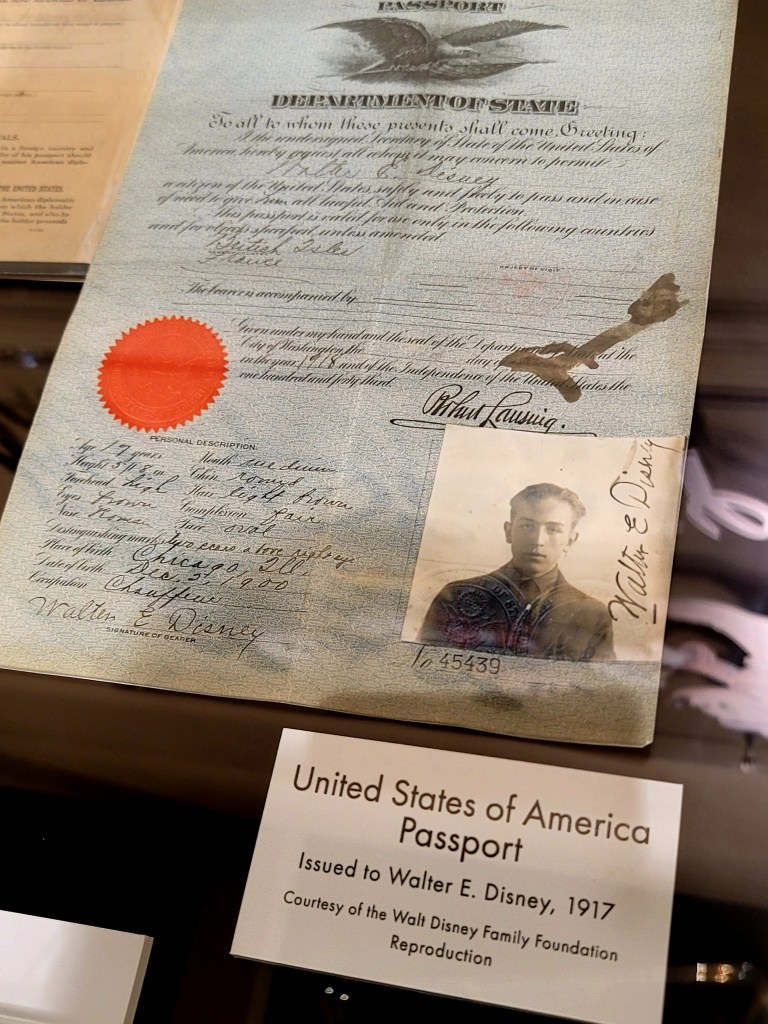 PASSPORT
DEPARTMENT OF STATE
To all to whom these presents shall come, Greeting:
I the undersigned, Secretary of State of the United States of
America, hereby request all whom it may concern to permit
Walter E. Disney
a citizen of the United States, safely and freely to pass and in case
of need to give him all lawful Aid and Protection.
This passport is valid for use only in the following countries
and for objects specified, unless amended.
British Isles
France
OBJECT OF VISIT
The bearer is accompanied by
Given under my hand and the seal of the Department of State at the
City of Washington, the day of
in the year 1918 and of the Independence of the United States the
one hundred and forty third.
Robert Lansing.
PERSONAL DESCRIPTION.
Age 17 years Mouth medium
Height 5 ft 8 in. Chin round
Forehead high Hair light brown
Eyes brown Complexion fair
Nose Roman Face oval
Distinguishing marks two scars above right eye
Place of birth Chicago, Ill.
Date of birth Dec. 5, 1900
Occupation Chauffeur
Walter E. Disney
SIGNATURE OF BEARER
Walter E Disney
No 45439
ALS.
to a foreign country and
THE UNITED STATES.
United States of America
Passport
Issued to Walter E. Disney, 1917
Courtesy of the Walt Disney Family Foundation
Reproduction